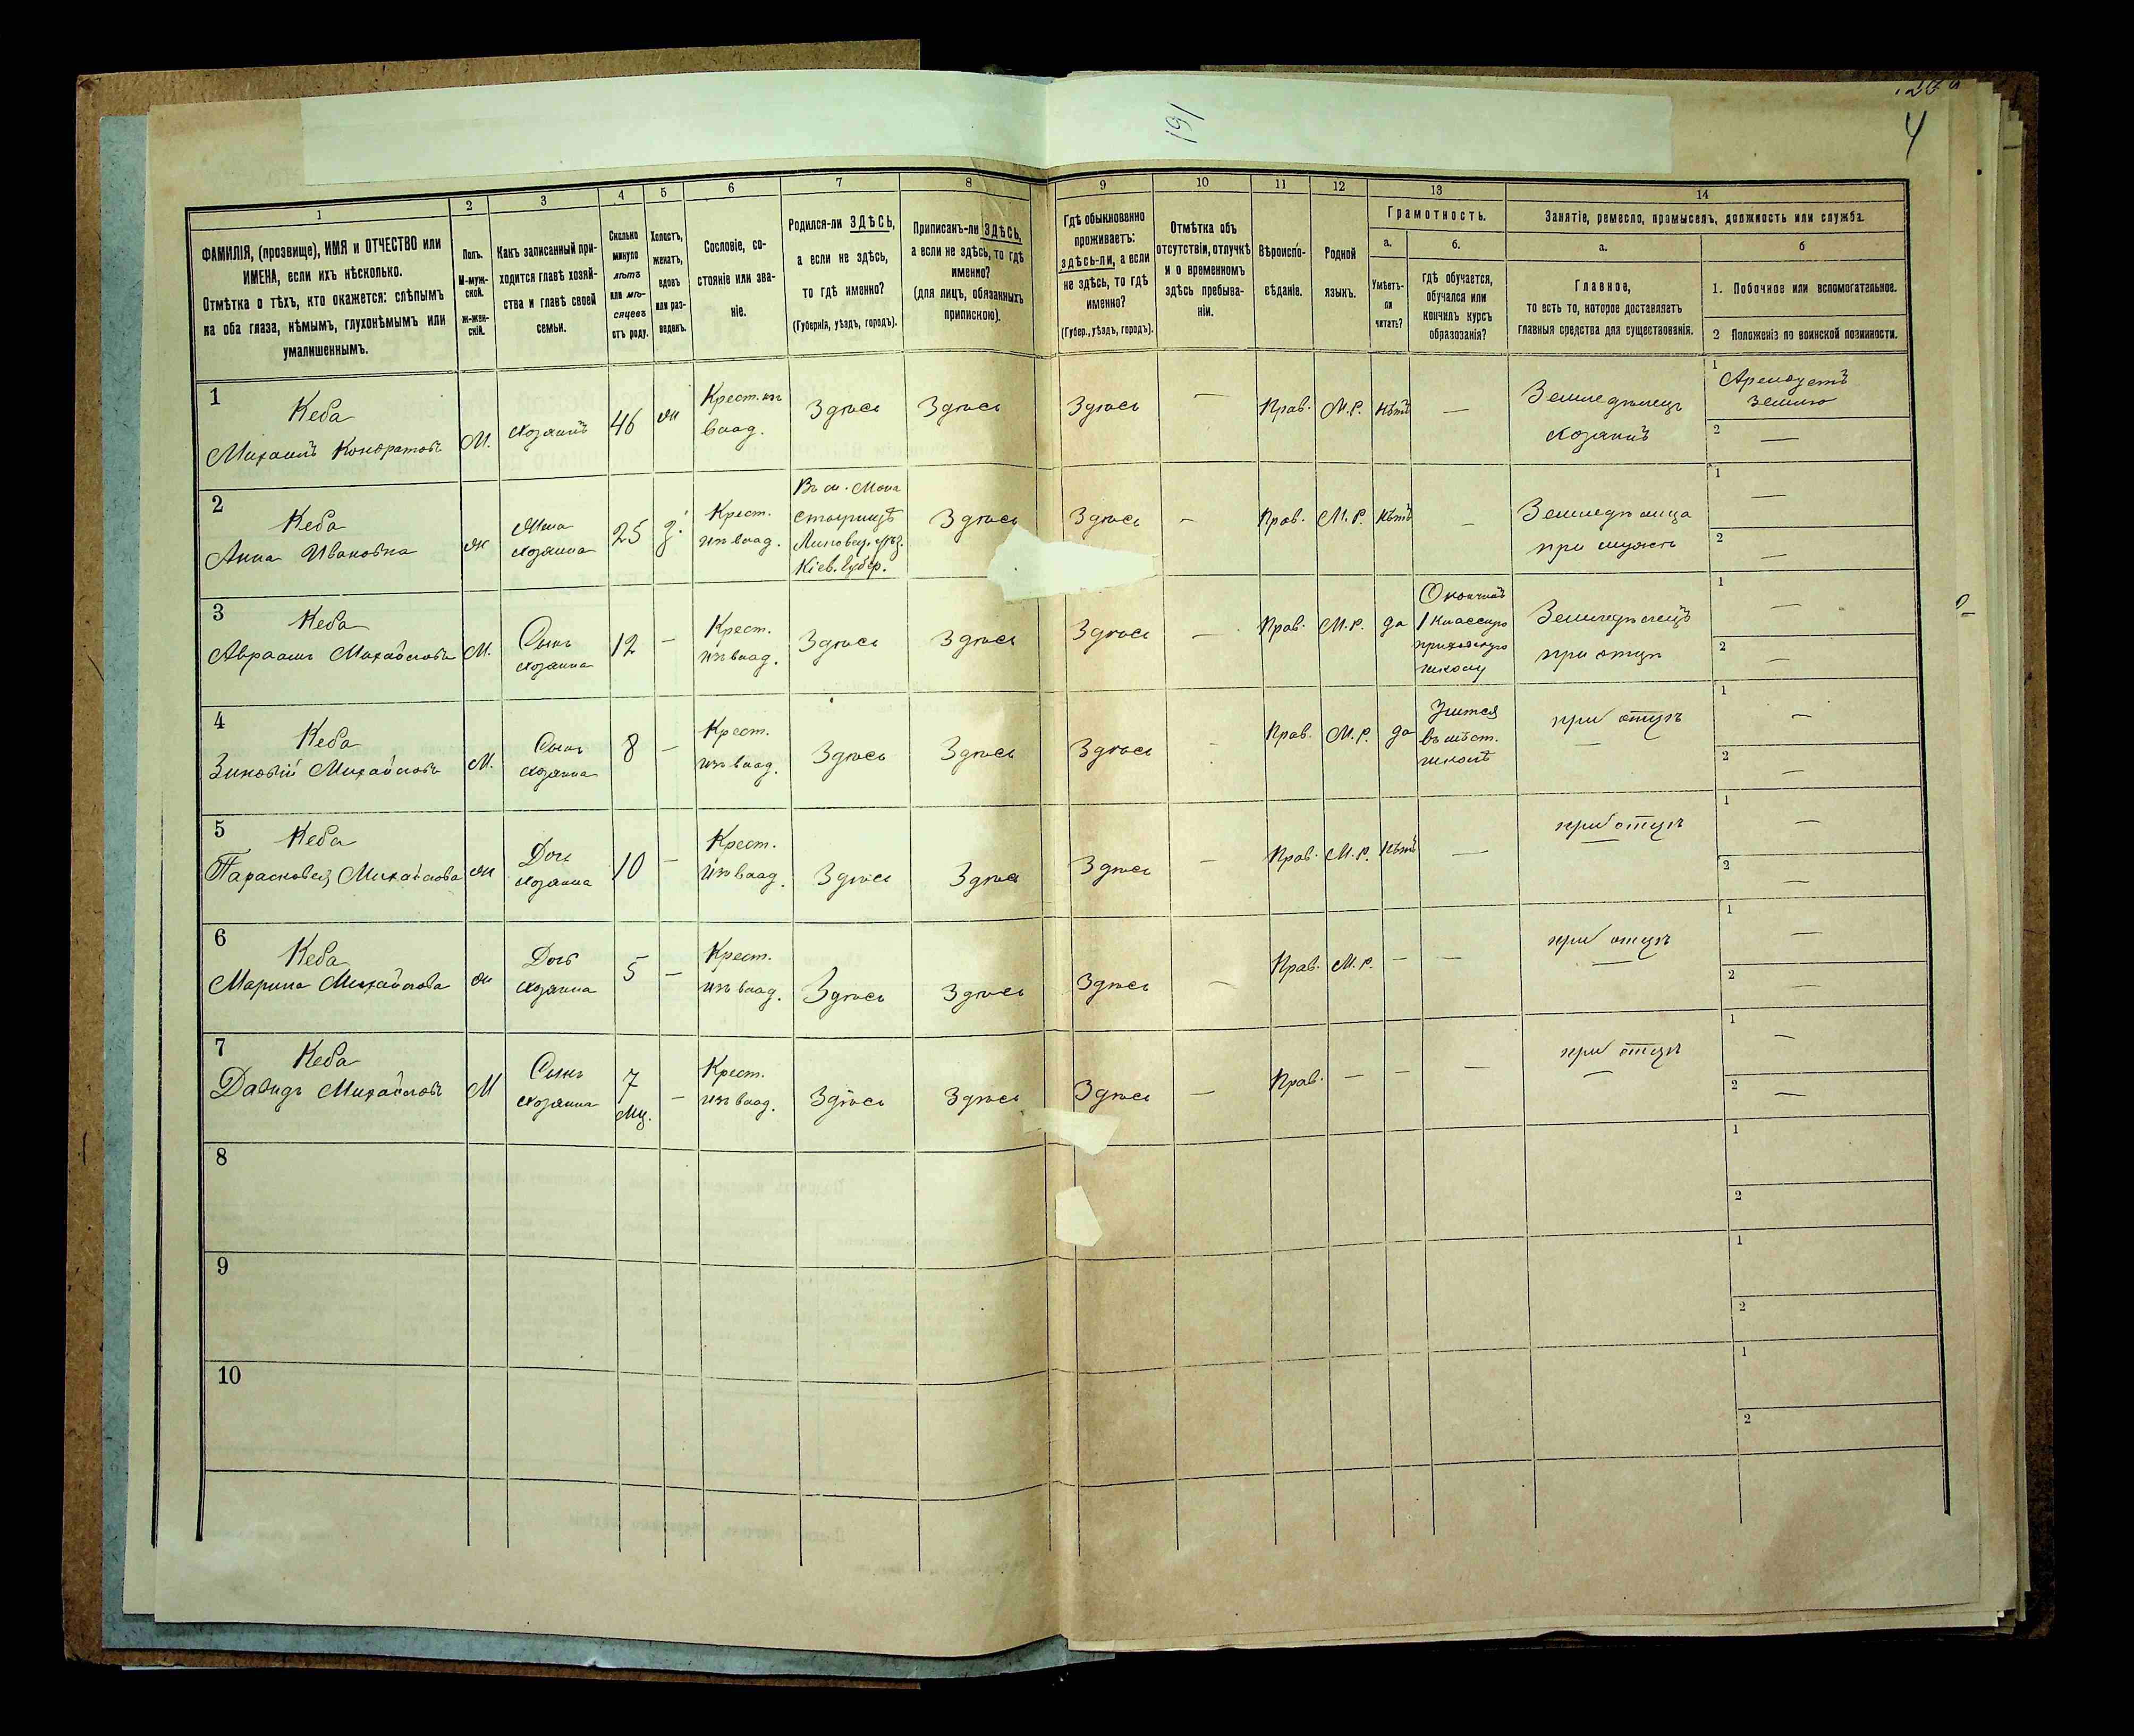 191
4
1
2
3
4
5
6
7
8
9
10
11
12
13
14
ФАМИЛІЯ, (прозвище), ИМЯ и ОТЧЕСТВО или
ИМЕНА, если ихъ нѣсколько.
Отмѣтка о тѣхъ, кто окажется: слѣпымъ
на оба глаза, нѣмымъ, глухонѣмымъ или
умалишеннымъ.
Полъ.
М-муж-
ской.
ж-жен-
скій.
Какъ записанный при-
ходится главѣ хозяй-
ства и главѣ своей
семьи.
Сколько
минуло
лѣтъ
или мѣ-
сяцевъ
отъ роду.
Холостъ,
женатъ,
вдовъ
или раз-
веденъ.
Сословіе, со-
стояніе или зва-
ніе.
Родился-ли ЗДѢСЬ,
а если не здѣсь,
то гдѣ именно?
(Губернія, уѣздъ, городъ).
Приписанъ-ли ЗДѢСЬ,
а если не здѣсь, то гдѣ
именно?
(для лицъ, обязанныхъ
припискою).
Гдѣ обыкновенно
проживаетъ:
здѣсь-ли, а если
не здѣсь, то гдѣ
именно?
(Губер., уѣздъ, городъ).
Отмѣтка объ
отсутствіи, отлучкѣ
и о временномъ
здѣсь пребыва-
ніи.
Вѣроиспо-
вѣданіе.
Родной
языкъ.
Грамотность.
а.
Умѣетъ-
ли
читать?
б.
Гдѣ обучается,
обучался или
кончилъ курсъ
образованія?
Занятіе, ремесло, промыселъ, должность или служба.
а.
Главное,
то есть то, которое доставляетъ
главныя средства для существованія.
б
1. Побочное или вспомогательное.
2 Положеніе по воинской повинности.
1
Кеба
Михаилъ Кондратовъ
М.
Хозяинъ
46
ж
Крест. изъ
влад.
Здѣсь
Здѣсь
Здѣсь
—
Прав.
М.Р.
нѣтъ
—
Земледѣлецъ
хозяинъ
1
Арендуетъ
землю
2
—
2
Кеба
Анна Ивановна
ж
Жена
хозяина
25
з.
Крест.
изъ влад.
Въ м. Мона
стырищѣ
Липовец. уѣз.
Кіев. губер.
Здѣсь
Здѣсь
—
Прав.
М.Р.
нѣтъ
—
Земледѣлица
при мужѣ
1
—
2
—
3
Кеба
Авраамъ Михайловъ
М.
Сынъ
хозяина
12
—
Крест.
изъ влад.
Здѣсь
Здѣсь
Здѣсь
—
Прав.
М.Р.
да
Окончилъ
1 классную
приходскую
школу
Земледѣлецъ
при отцѣ
1
—
2
—
4
Кеба
Зиновій Михайловъ
М.
Сынъ
хозяина
8
—
Крест.
изъ влад.
Здѣсь
Здѣсь
Здѣсь
—
Прав.
М.Р.
да
Учится
въ мѣст.
школѣ
при отцѣ
—
1
—
2
—
5
Кеба
Парасковея Михайлова
ж
Дочь
хозяина
10
—
Крест.
изъ влад.
Здѣсь
Здѣсь
Здѣсь
—
Прав.
М.Р.
нѣтъ
—
при отцѣ
—
1
—
2
—
6
Кеба
Марина Михайлова
ж
Дочь
хозяина
5
—
Крест.
изъ влад.
Здѣсь
Здѣсь
Здѣсь
—
Прав.
М.Р.
—
—
при отцѣ
—
1
—
2
—
7
Кеба
Давидъ Михайловъ
М
Сынъ
хозяина
7
мц.
—
Крест.
изъ влад.
Здѣсь
Здѣсь
Здѣсь
—
Прав.
—
—
—
при отцѣ
—
1
—
2
—
8
1
2
9
1
2
10
1
2